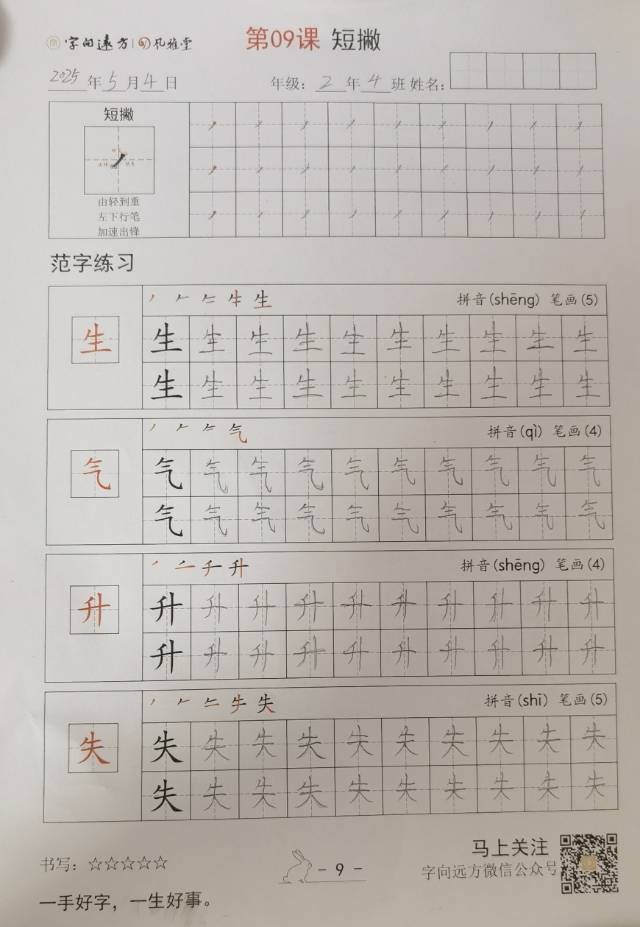 字向远方 凡雅堂 第09课 短撇
2025年5月4日 年级:2年4班 姓名:
短撇
由轻到重
左下行笔
加速出锋
范字练习
生 拼音(shēng) 笔画(5)
生 生 生 生 生 生 生 生 生 生 生
生 生 生 生 生 生 生 生 生 生
气 拼音(qì) 笔画(4)
气 气 气 气 气 气 气 气 气 气 气
气 气 气 气 气 气 气 气 气 气
千 升 拼音(shēng) 笔画(4)
升 升 升 升 升 升 升 升 升 升 升
升 升 升 升 升 升 升 升 升 升
失 拼音(shī) 笔画(5)
失 失 失 失 失 失 失 失 失 失 失
失 失 失 失 失 失 失 失 失 失
书写:☆☆☆☆☆ - 9 - 马上关注
字向远方微信公众号
一手好字,一生好事。